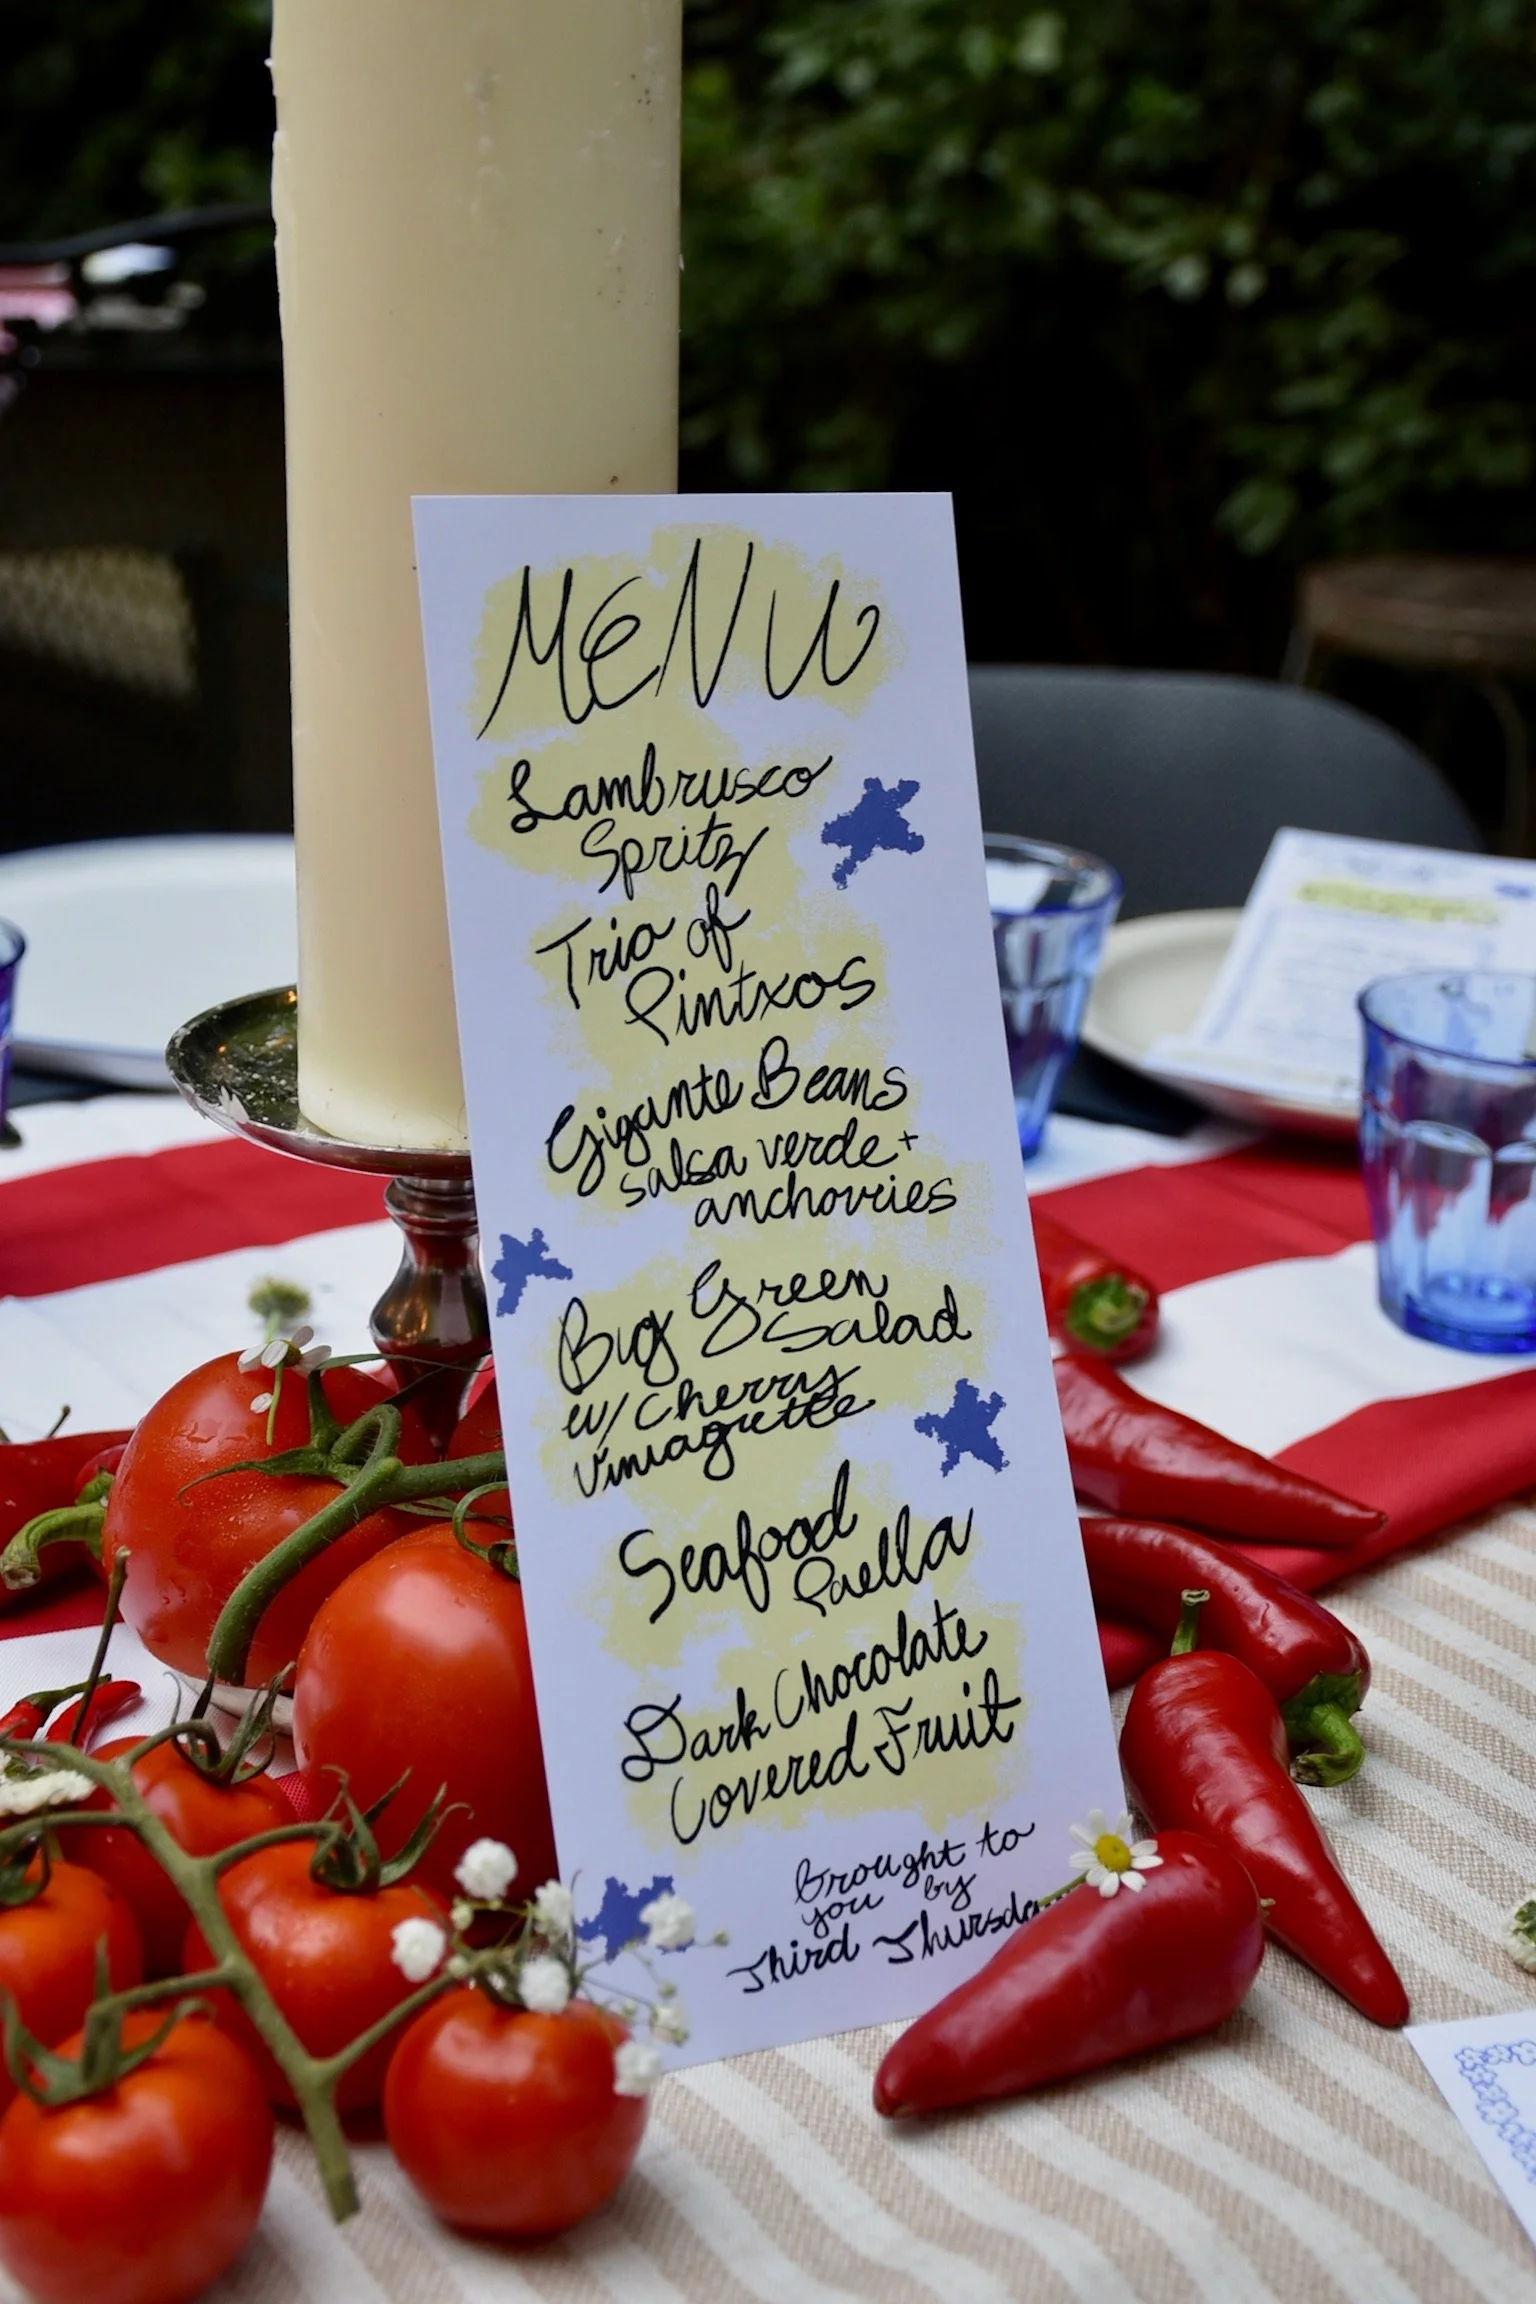 MENU
Lambrusco
Spritz
Trio of
Pintxos
Gigante Beans
salsa verde +
anchovies
Big Green
Salad
w/ Cherry
Viniagrette
Seafood
Paella
Dark Chocolate
Covered Fruit
brought to
you by
Third Thursda